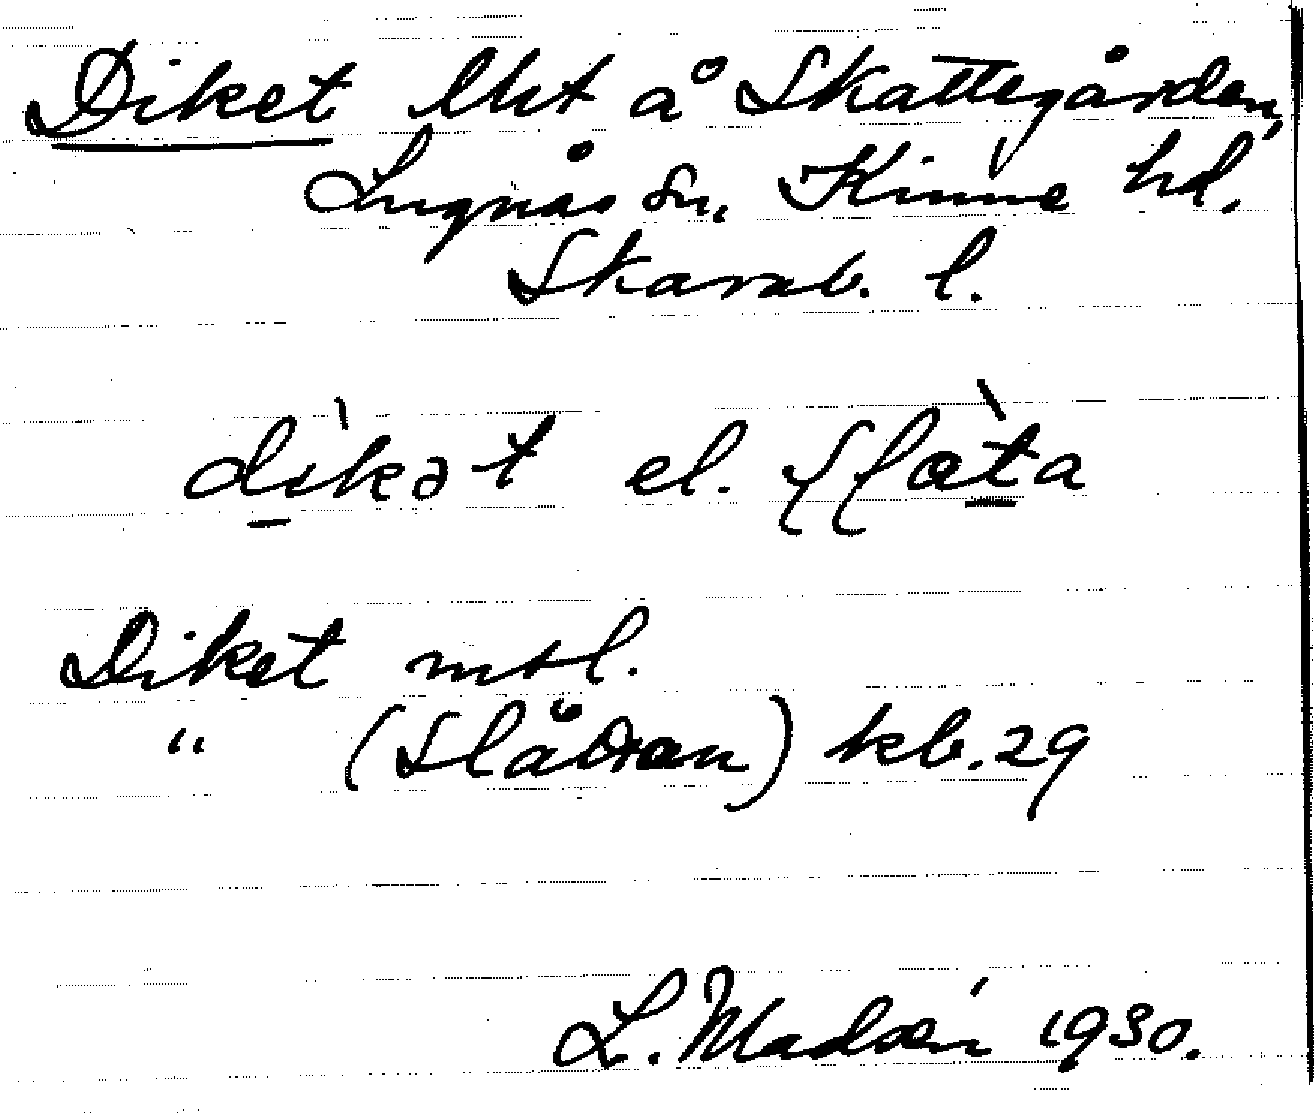 Diket lht å Skattegården,
Lugnås sn, Kinne hd.
Skarab. l.
dikət el.
Diket mtl.
" (Slådran) kb. 29
L. Madsén 1930.